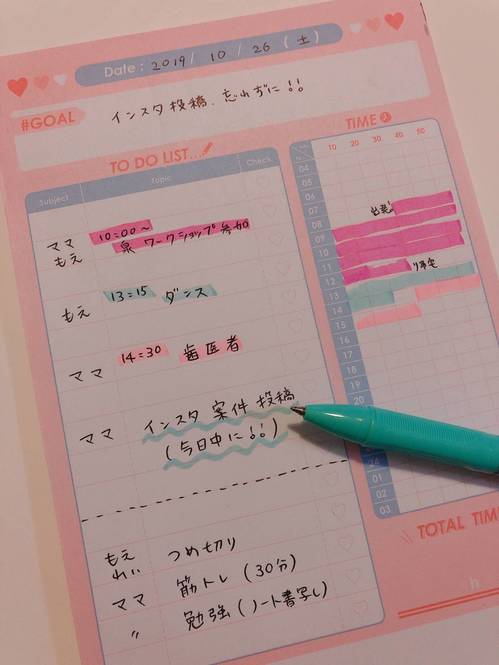 Date: 2019 / 10 / 26 (土)
#GOAL
インスタ投稿、忘れずに!!
TO DO LIST...
Subject Topic Check
ママ 10:00〜
もえ 泉 ワークショップ参加
もえ 13:15 ダンス
ママ 14:30 歯医者
ママ インスタ 案件 投稿
(今日中に!!)
もえ つめ切り
れい
ママ 筋トレ (30分)
〃 勉強 (ノート書写し)
TIME
10 20 30 40 50
04
05
06
07 出発!
08
09
10
11 帰宅
12
13
14
15
16
17
18
19
20
24
01
02
03
TOTAL TIME
h